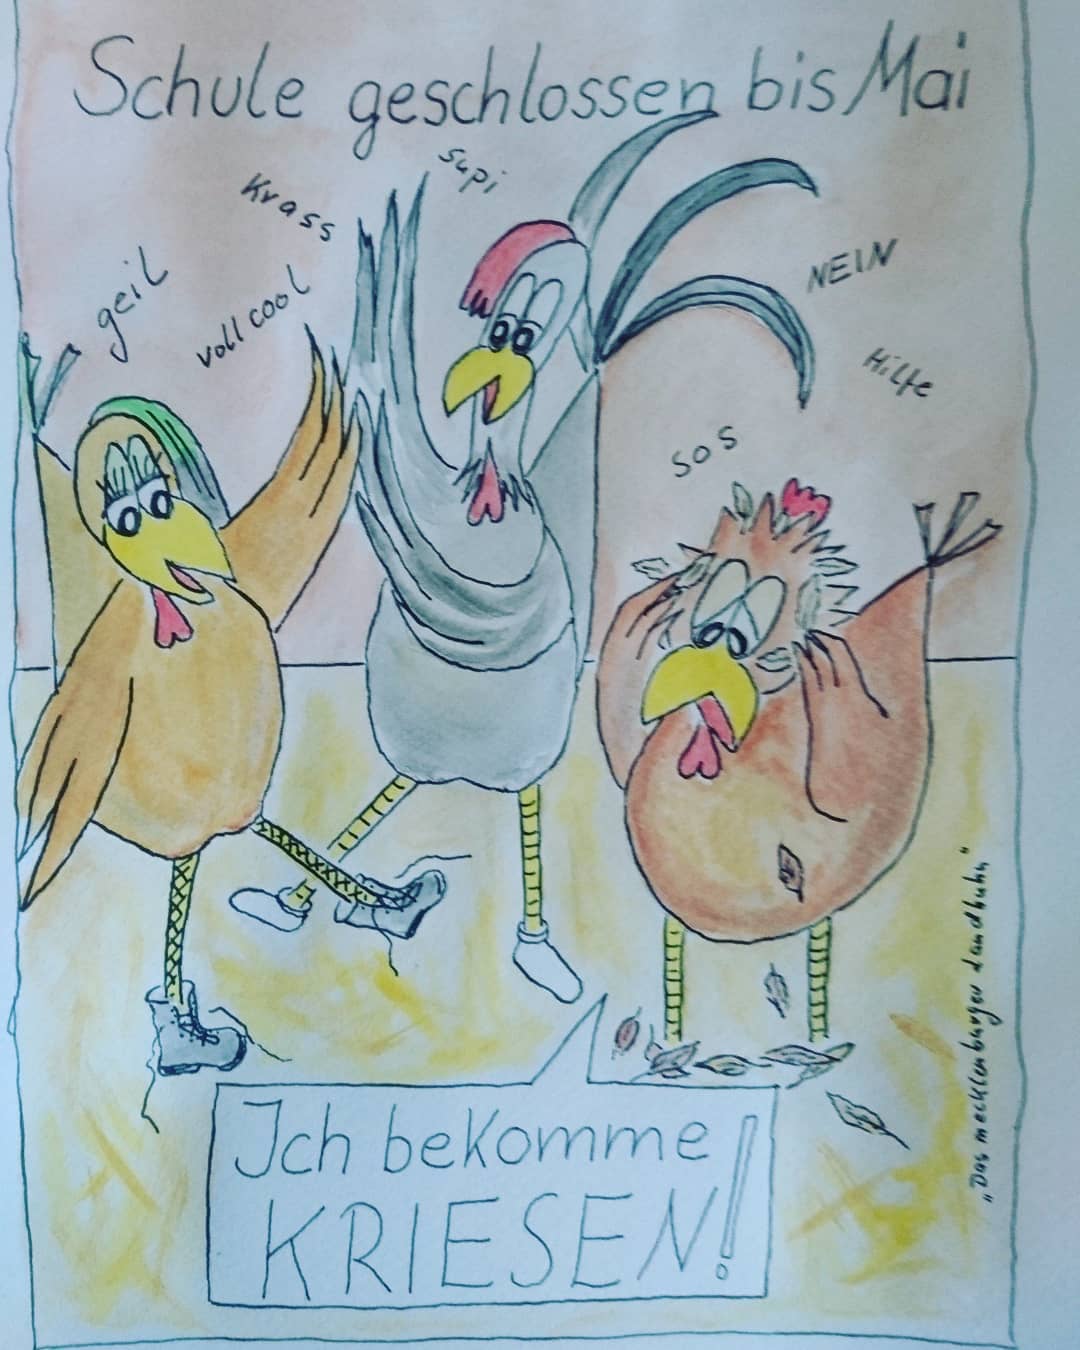 Schule geschlossen bis Mai
supi
Krass
geil
voll cool
NEIN
Hilfe
SOS
Ich bekomme
KRIESEN!
"Das mecklenburger Landhuhn"